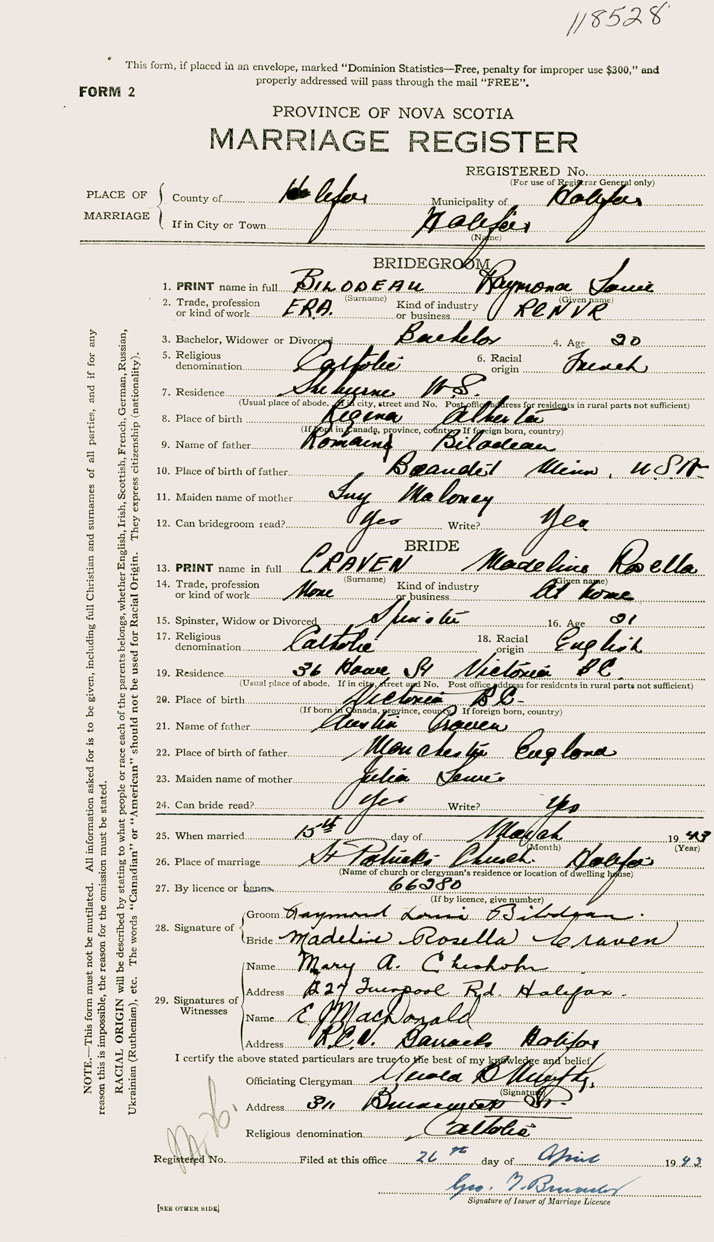 118528
This form, if placed in an envelope, marked "Dominion Statistics—Free, penalty for improper use $300," and
properly addressed will pass through the mail "FREE".
FORM 2
PROVINCE OF NOVA SCOTIA
MARRIAGE REGISTER
REGISTERED No.
(For use of Registrar General only)
PLACE OF MARRIAGE
County of Halifax Municipality of Halifax
If in City or Town Halifax
(Name)
BRIDEGROOM
1. PRINT name in full BILODEAU Raymond Louis
(Surname) (Given name)
2. Trade, profession or kind of work E.R.A. Kind of industry or business RCNVR
3. Bachelor, Widower or Divorced Bachelor 4. Age 20
5. Religious denomination Catholic 6. Racial origin French
7. Residence N.S.
(Usual place of abode. If in city, street and No. Post office address for residents in rural parts not sufficient)
8. Place of birth Regina Alberta
(If born in Canada, province, county. If foreign born, country)
9. Name of father Romaine Bilodeau
10. Place of birth of father Minn. U.S.A.
11. Maiden name of mother Maloney
12. Can bridegroom read? Yes Write? Yes
BRIDE
13. PRINT name in full CRAVEN Madeline Rosella
(Surname) (Given name)
14. Trade, profession or kind of work None Kind of industry or business At home
15. Spinster, Widow or Divorced Spinster 16. Age 21
17. Religious denomination Catholic 18. Racial origin English
19. Residence 36 Howe St Victoria B.C.
(Usual place of abode. If in city, street and No. Post office address for residents in rural parts not sufficient)
20. Place of birth Victoria B.C.
(If born in Canada, province, county. If foreign born, country)
21. Name of father Austin Craven
22. Place of birth of father Manchester England
23. Maiden name of mother Julia
24. Can bride read? Yes Write? Yes
25. When married 15th day of March 1943
(Month) (Year)
26. Place of marriage St Patricks Church Halifax
(Name of church or clergyman's residence or location of dwelling house)
27. By licence or banns 66280
(If by licence, give number)
28. Signature of
Groom Raymond Louis Bilodeau.
Bride Madeline Rosella Craven
29. Signatures of Witnesses
Name Mary A. Chisholm
Address 227 Liverpool Rd. Halifax.
Name E MacDonald
Address R.C.N. Barracks Halifax
I certify the above stated particulars are true to the best of my knowledge and belief
Officiating Clergyman Gerald B Murphy
(Signature)
Address St.
Religious denomination Catholic
Registered No. Filed at this office 26th day of April 1943
Geo. T.
Signature of Issuer of Marriage Licence
[SEE OTHER SIDE]
NOTE.—This form must not be mutilated. All information asked for is to be given, including full Christian and surnames of all parties, and if for any
reason this is impossible, the reason for the omission must be stated.
RACIAL ORIGIN will be described by stating to what people or race each of the parents belongs, whether English, Irish, Scottish, French, German, Russian,
Ukrainian (Ruthenian), etc. The words "Canadian" or "American" should not be used for Racial Origin. They express citizenship (nationality).